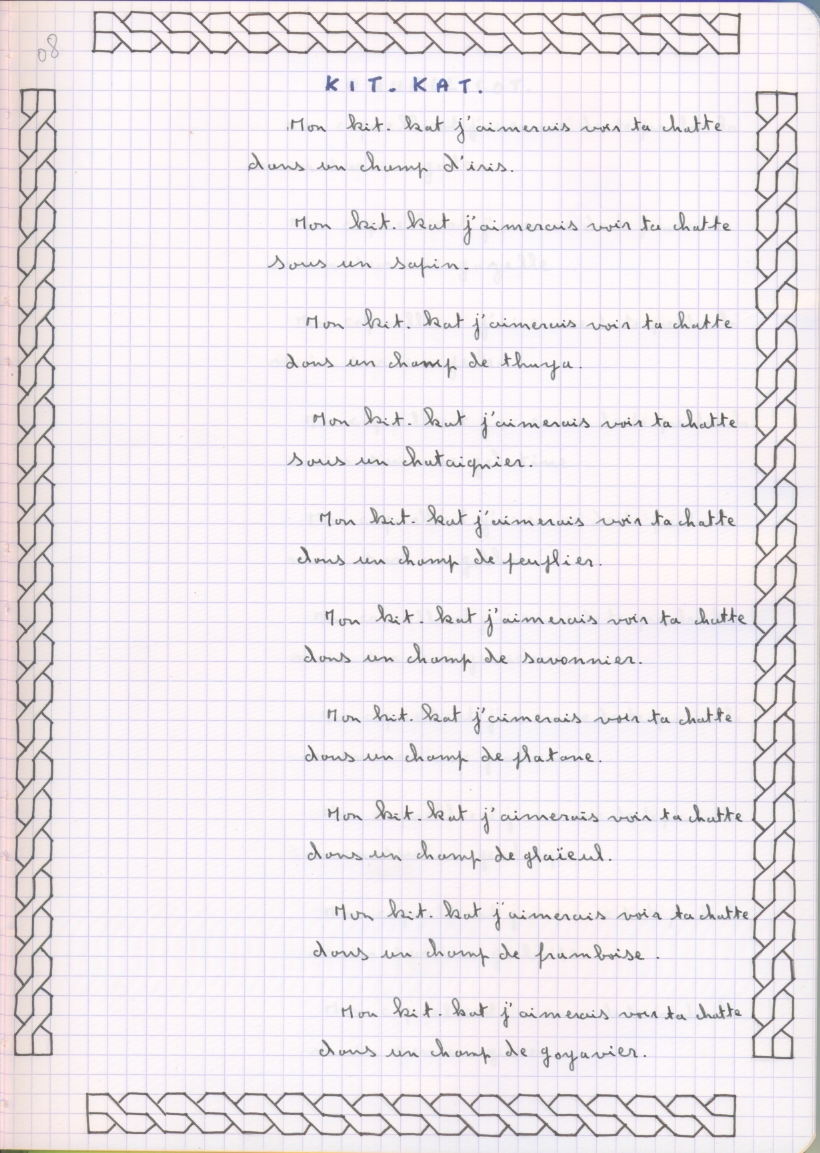 08
KIT. KAT.
Mon kit. kat j'aimerais voir ta chatte
dans un champ d'iris.
Mon kit. kat j'aimerais voir ta chatte
sous un sapin.
Mon kit. kat j'aimerais voir ta chatte
dans un champ de thuya.
Mon kit. kat j'aimerais voir ta chatte
sous un chataignier.
Mon kit. kat j'aimerais voir ta chatte
dans un champ de peuplier.
Mon kit. kat j'aimerais voir ta chatte
dans un champ de savonnier.
Mon kit. kat j'aimerais voir ta chatte
dans un champ de platane.
Mon kit. kat j'aimerais voir ta chatte
dans un champ de glaïeul.
Mon kit. kat j'aimerais voir ta chatte
dans un champ de framboise.
Mon kit. kat j'aimerais voir ta chatte
dans un champ de goyavier.